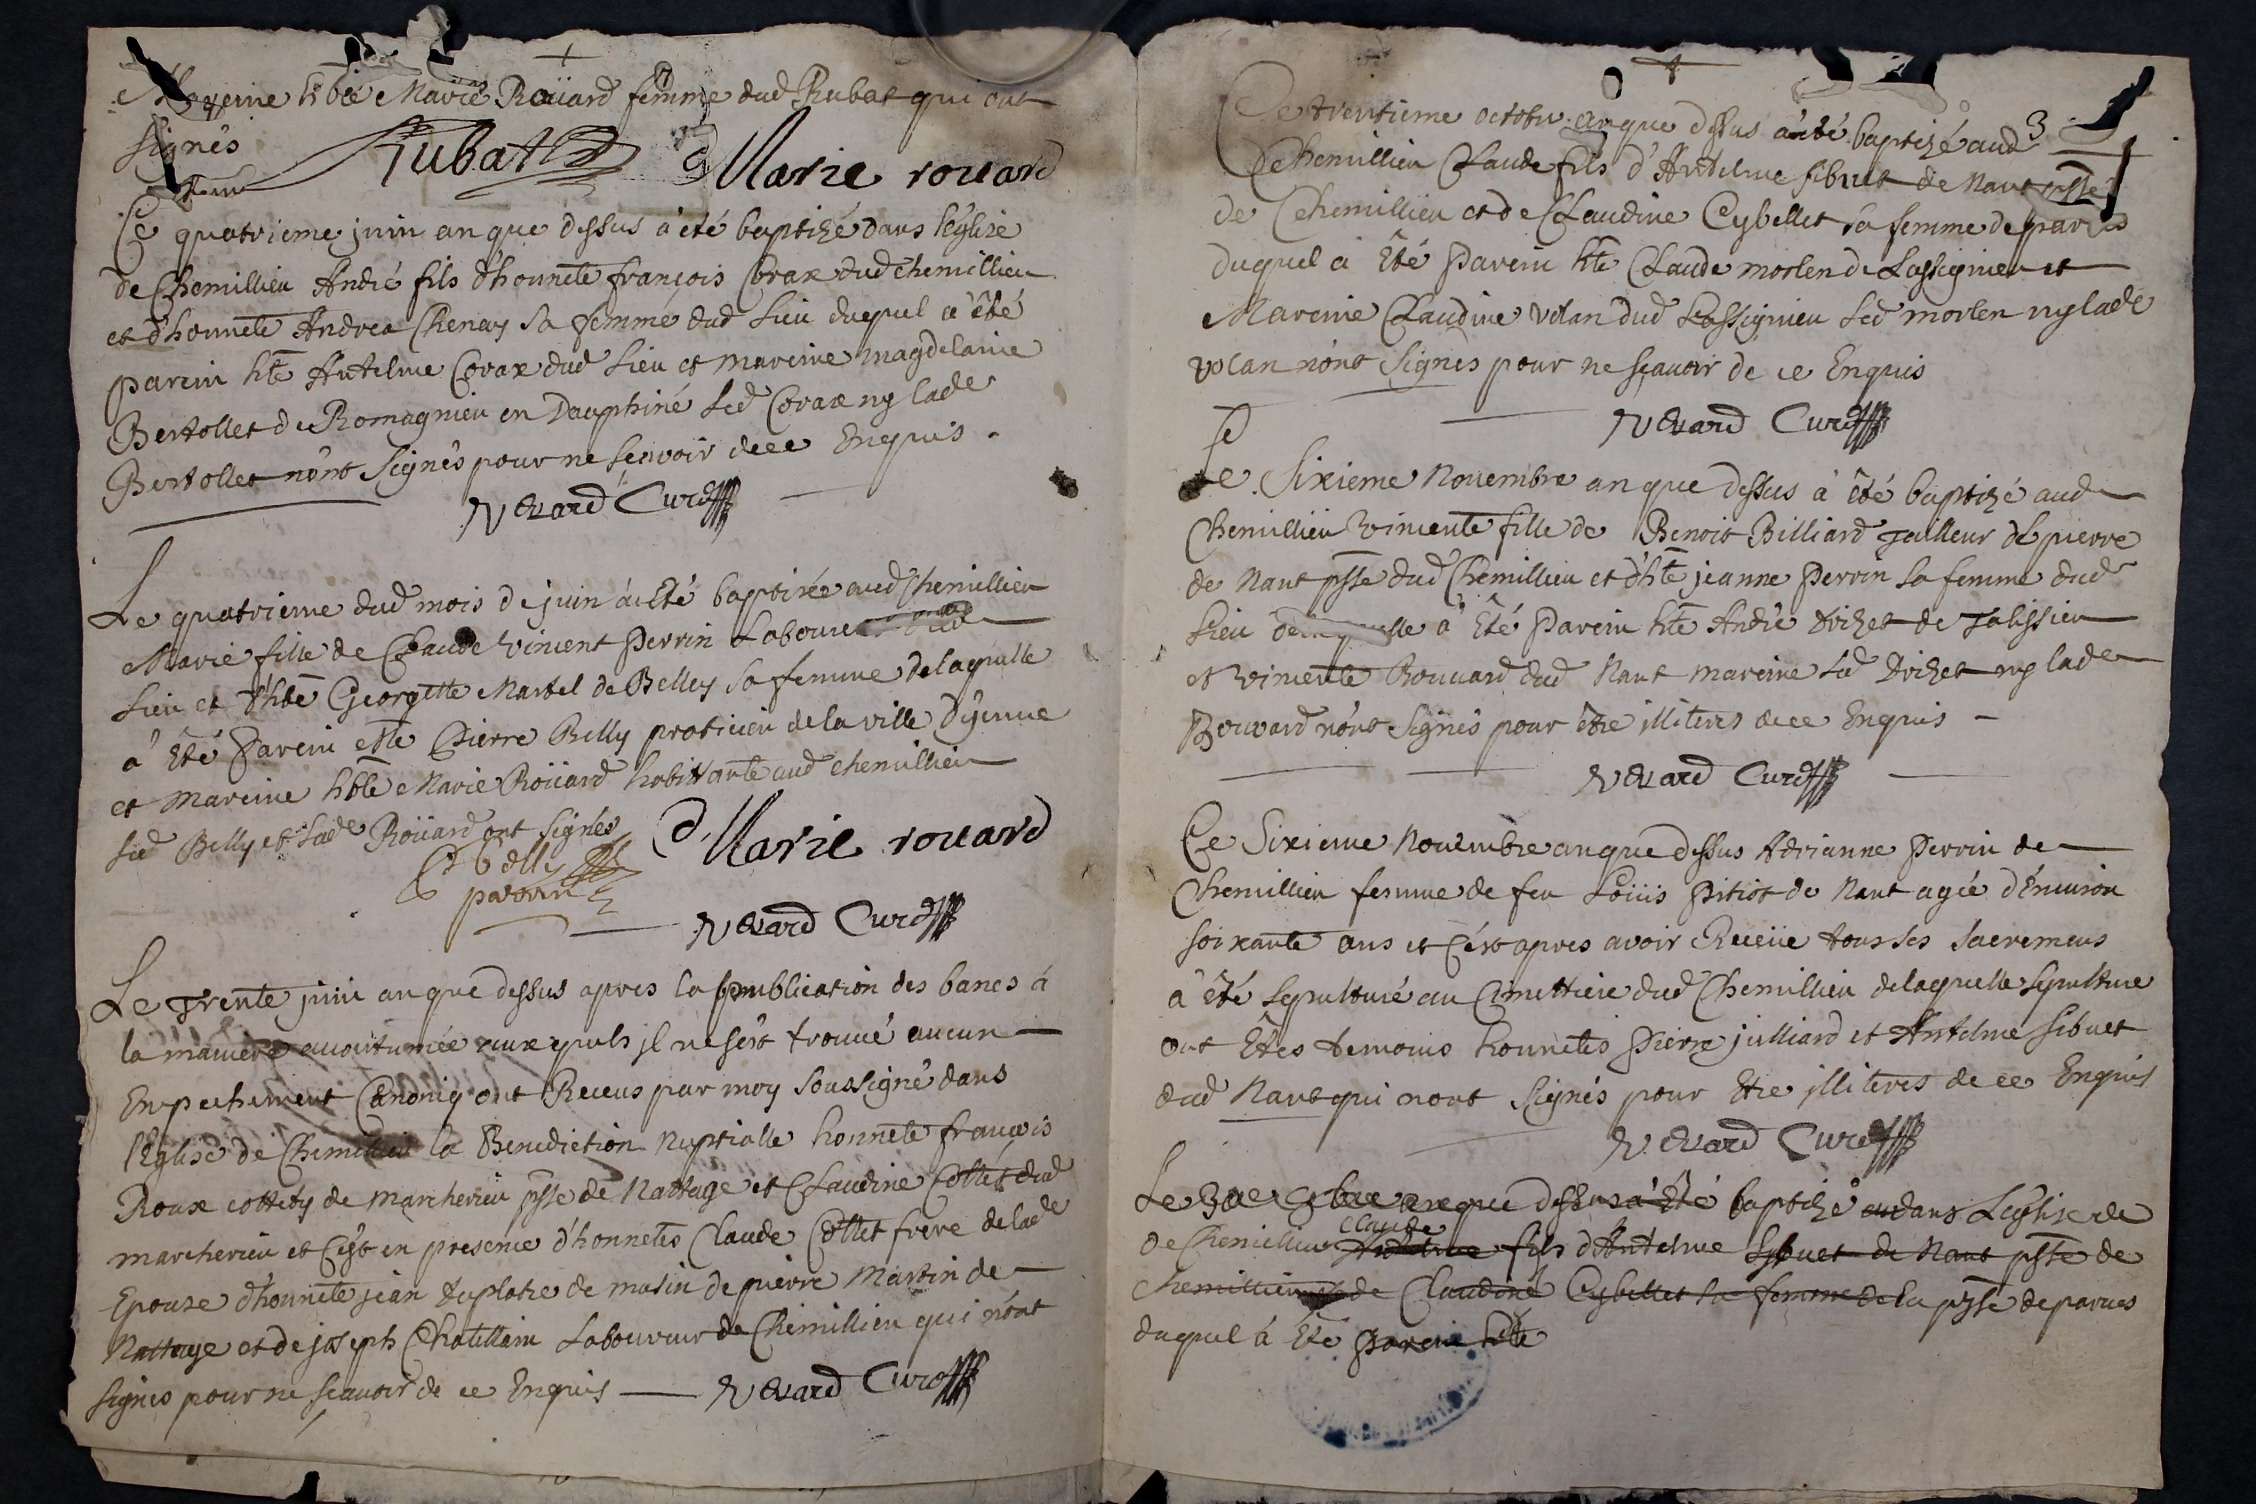 Mareine hble Marie Roüard femme dud Rubat qui ont
signés
Rubat Marie rouard
Ce quatrieme juin an que dessus a été baptizé dans léglise
de Chemillieu André fils d'honnete françois Corax dud chemillieu
et d'honnete Andrea Chenay sa femme dud Lieu duquel a été
parein hte Antelme Corax dud Lieu et mareine magdelaine
Bertollet de Romagnieu en Dauphiné Led Corax ny lade
Bertollet n'ont signés pour ne sçavoir de ce Enquis.
N Evard Curé
Le quatrieme dud mois de juin a été baptizée aud Chemillieu
Marie fille de Claude Vincent Perrin Laboureur dud
Lieu et d'hte Georgette Martel de Belley sa femme de laquelle
a' Eté Parein hble Pierre Belly praticien de la ville d'yenne
et Mareine hble Marie Roüard habittante aud chemillieu
Led Belly et lade Roüard ont signés
P Belly Marie rouard
parrin
N Evard Curé
Le Trente juin an que dessus apres la publication des bancs á
la maniere accoutumée aux quels jl ne sést trouué aucun
Enpechement Canoniq ont Receus par moy soussigné dans
l'Eglise de Chemillieu la Benediction Nuptialle honnete françois
Roux cottety de marcherieu psse de Nattage et Claudine Collet dud
marcherieu et C'est en presence d'honnetes Claude Collet frere de lade
Epouze d'honnete jean duplatre de masin de pierre Martin de
Nattage et de joseph Chatillain Laboureur de Chimillieu qui n'ont
signés pour ne sçavoir de ce Enquis N Evard Curé
3
Ce trentieme octobr. an que dessus a été baptizé aud
Chemillieu Claude fils d'Antelme sibuet de Nant psse
de Chemillieu et de Claudine Cybellet sa femme de parves
duquel a Eté Parein hte Claude morlen de Lassignieu et
Mareine Claudine volan dud Lassignieu Led morlen ny lade
volan n'ont signés pour ne sçavoir de ce Enquis
N Evard Curé
Ce
Le Sixieme Novembre an que dessus a' été baptizé aud
Chemillieu Vincente fille de Benoit Billiard Tailleur de pierre
de Nant psse dud Chemillieu et d'hte jeanne Perrin sa femme dud
Lieu de laquelle a' Eté Parein hte André drizet de Talissieu
et Vincente Rouuard dud Nant mareine Led Drizet ny lade
Rouuard n'ont signés pour être illiterés de ce Enquis
N Evard Curé
Ce Sixieme Novembre an que dessus Adrianne Perrin de
Chemillieu femme de feu Loüis Pitiot de Nant agée d'Enuiron
soixante ans et C'ést apres avoir Receüe tous ses sacremens
a été sepulturé au Cimettiere dud Chemillieu de laquelle sepulture
ont Etés temoins honnetes Pierre julliard et Antelme sibuet
dud Nant qui nont signés pour Etre jlliterés de ce Enquis
N Evard Curé
Le 30e 8bre an que dessus a' Eté baptizé dans L'eglise de
Claude
de Chemillieu Antelme fils d'Antelme sybuet de Nant psse de
Chemillieu de Claudine Cybellet sa femme de la psse de parves
duquel á Eté parein hte